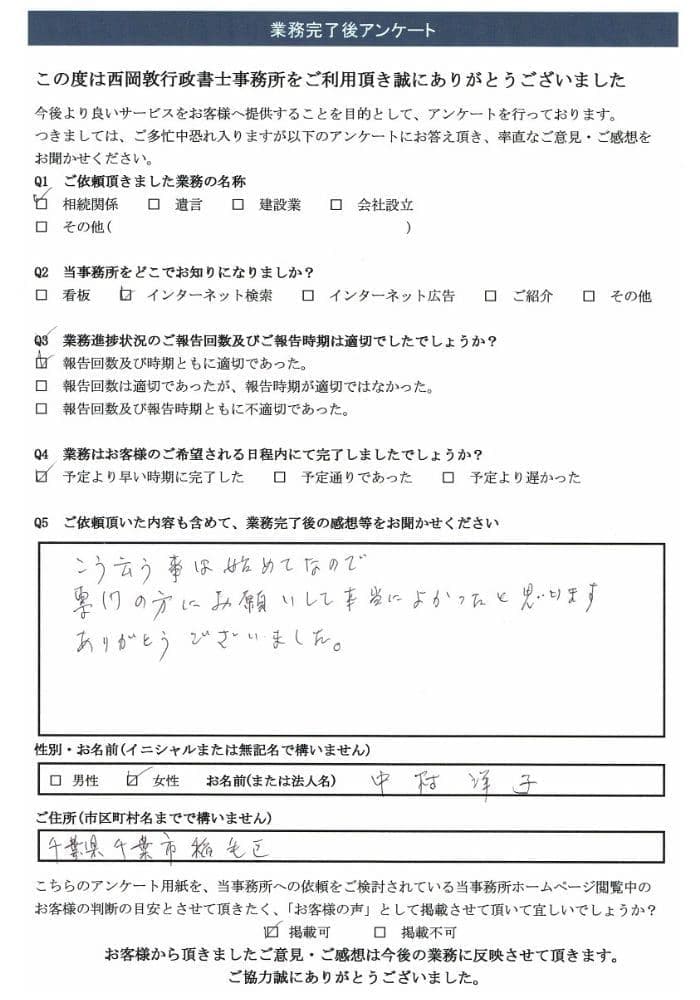 業務完了後アンケート
この度は西岡敦行政書士事務所をご利用頂き誠にありがとうございました
今後より良いサービスをお客様へ提供することを目的として、アンケートを行っております。
つきましては、ご多忙中恐れ入りますが以下のアンケートにお答え頂き、率直なご意見・ご感想を
お聞かせください。
Q1 ご依頼頂きました業務の名称
☑ 相続関係 □ 遺言 □ 建設業 □ 会社設立
□ その他( )
Q2 当事務所をどこでお知りになりましか？
□ 看板 ☑ インターネット検索 □ インターネット広告 □ ご紹介 □ その他
Q3 業務進捗状況のご報告回数及びご報告時期は適切でしたでしょうか？
☑ 報告回数及び時期ともに適切であった。
□ 報告回数は適切であったが、報告時期が適切ではなかった。
□ 報告回数及び報告時期ともに不適切であった。
Q4 業務はお客様のご希望される日程内にて完了しましたでしょうか？
☑ 予定より早い時期に完了した □ 予定通りであった □ 予定より遅かった
Q5 ご依頼頂いた内容も含めて、業務完了後の感想等をお聞かせください
こう云う事は始めてなので
専門の方にお願いして本当によかったと思います
ありがとうございました。
性別・お名前(イニシャルまたは無記名で構いません)
□ 男性 ☑ 女性 お名前(または法人名) 中村洋子
ご住所(市区町村名までで構いません)
千葉県千葉市稲毛区
こちらのアンケート用紙を、当事務所への依頼をご検討されている当事務所ホームページ閲覧中の
お客様の判断の目安とさせて頂きたく、「お客様の声」として掲載させて頂いて宜しいでしょうか？
☑ 掲載可 □ 掲載不可
お客様から頂きましたご意見・ご感想は今後の業務に反映させて頂きます。
ご協力誠にありがとうございました。